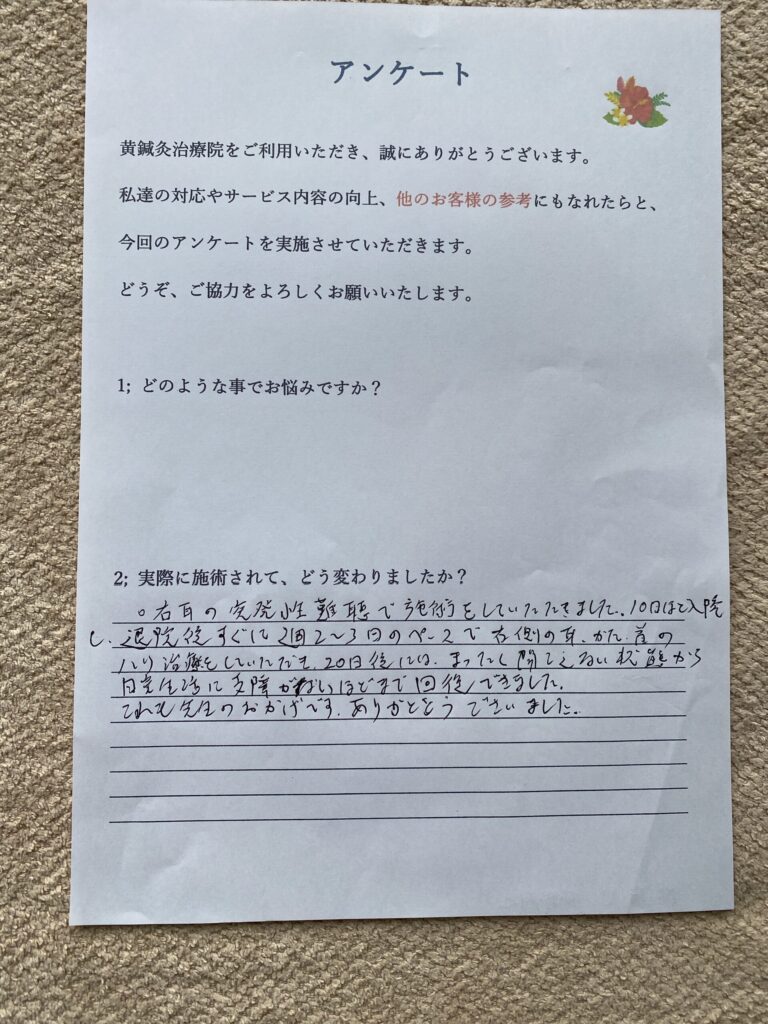 アンケート
黄鍼灸治療院をご利用いただき、誠にありがとうございます。
私達の対応やサービス内容の向上、他のお客様の参考にもなれたらと、
今回のアンケートを実施させていただきます。
どうぞ、ご協力をよろしくお願いいたします。
1; どのような事でお悩みですか？
2; 実際に施術されて、どう変わりましたか？
○右耳の突発性難聴で施術をしていただきました。10日ほど入院
し、退院後すぐに週2〜3日のペースで右側の耳、かた、首の
ハリ治療をしていただき、20日後には、まったく聞こえない状態から
日常生活に支障がないほどまで回復できました。
これも先生のおかげです。ありがとうございました。